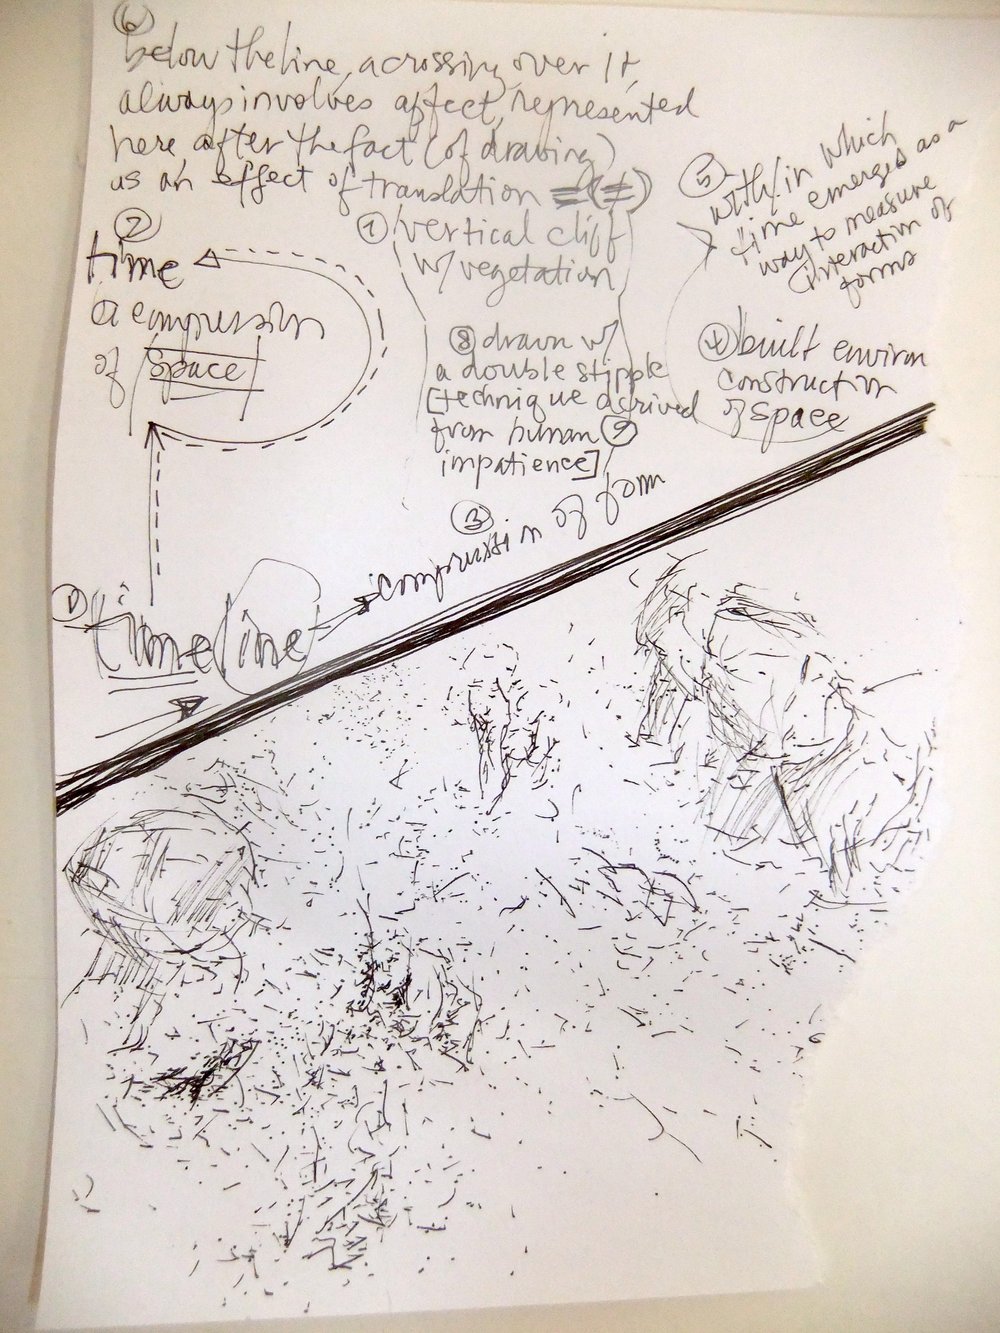 ⑥
below the line, a crossing over it,
always involves affect, represented
here, after the fact (of drawing)
as an effect of translation = (≠)
②
time
a compression
of space
⑦ vertical cliff
w/ vegetation
⑧ drawn w/
a double stipple
[technique derived
from human ⑨
impatience]
⑤ with/in which
time emerged as a
way to measure
interaction of
forms
④ built environ
construction
of space
③
compression of form
① timeline